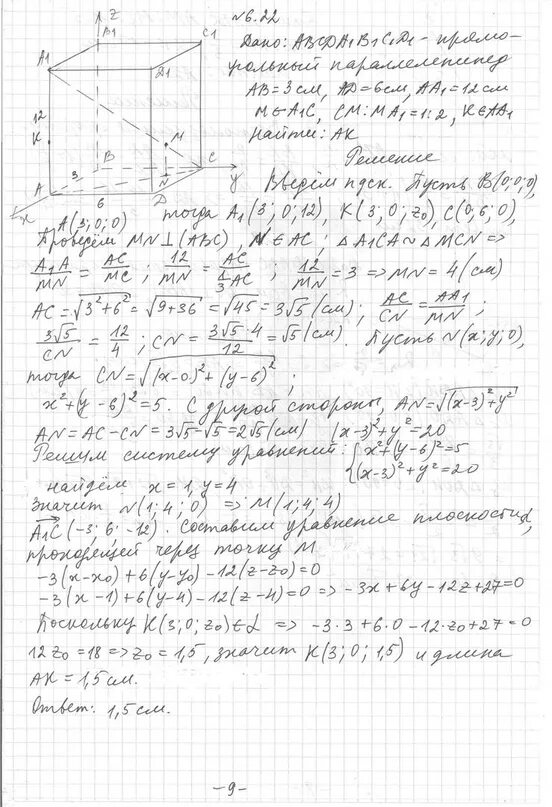 N6.22
Дано: ABCDA1B1C1D1 - прямо-
угольный параллелепипед
AB=3см, AD=6см, AA1=12см
M∈A1C, CM:MA1=1:2, K∈AA1
Найти: AK
Решение
Введём пдск. Пусть B(0;0;0),
z
B1
C1
A1
D1
12
K
M
3
B
C
y
N
A
6
D
x
A(3;0;0)
тогда A1(3;0;12), K(3;0;z0), C(0;6;0)
Проведём MN⊥(ABC), N∈AC; ΔA1CA~ΔMCN =>
A1A/MN = AC/MC; 12/MN = AC/(1/3 AC); 12/MN = 3 => MN = 4(см)
AC=√(3²+6²)=√(9+36)=√45=3√5(см); AC/CN = AA1/MN;
3√5/CN = 12/4; CN = 3√5·4/12 = √5(см). Пусть N(x;y;0),
тогда CN=√((x-0)²+(y-6)²);
x²+(y-6)²=5. С другой стороны, AN=√((x-3)²+y²)
AN=AC-CN=3√5-√5=2√5(см) (x-3)²+y²=20
Решим систему уравнений: { x²+(y-6)²=5
(x-3)²+y²=20
найдём x=1, y=4
Значит N(1;4;0) => M(1;4;4)
A1C(-3;6;-12). Составим уравнение плоскости α,
проходящей через точку M
-3(x-x0)+6(y-y0)-12(z-z0)=0
-3(x-1)+6(y-4)-12(z-4)=0 => -3x+6y-12z+27=0
Поскольку K(3;0;z0)∈α => -3·3+6·0-12·z0+27=0
12z0=18=>z0=1,5, значит K(3;0;1,5) и длина
AK=1,5см.
Ответ: 1,5см.
-9-